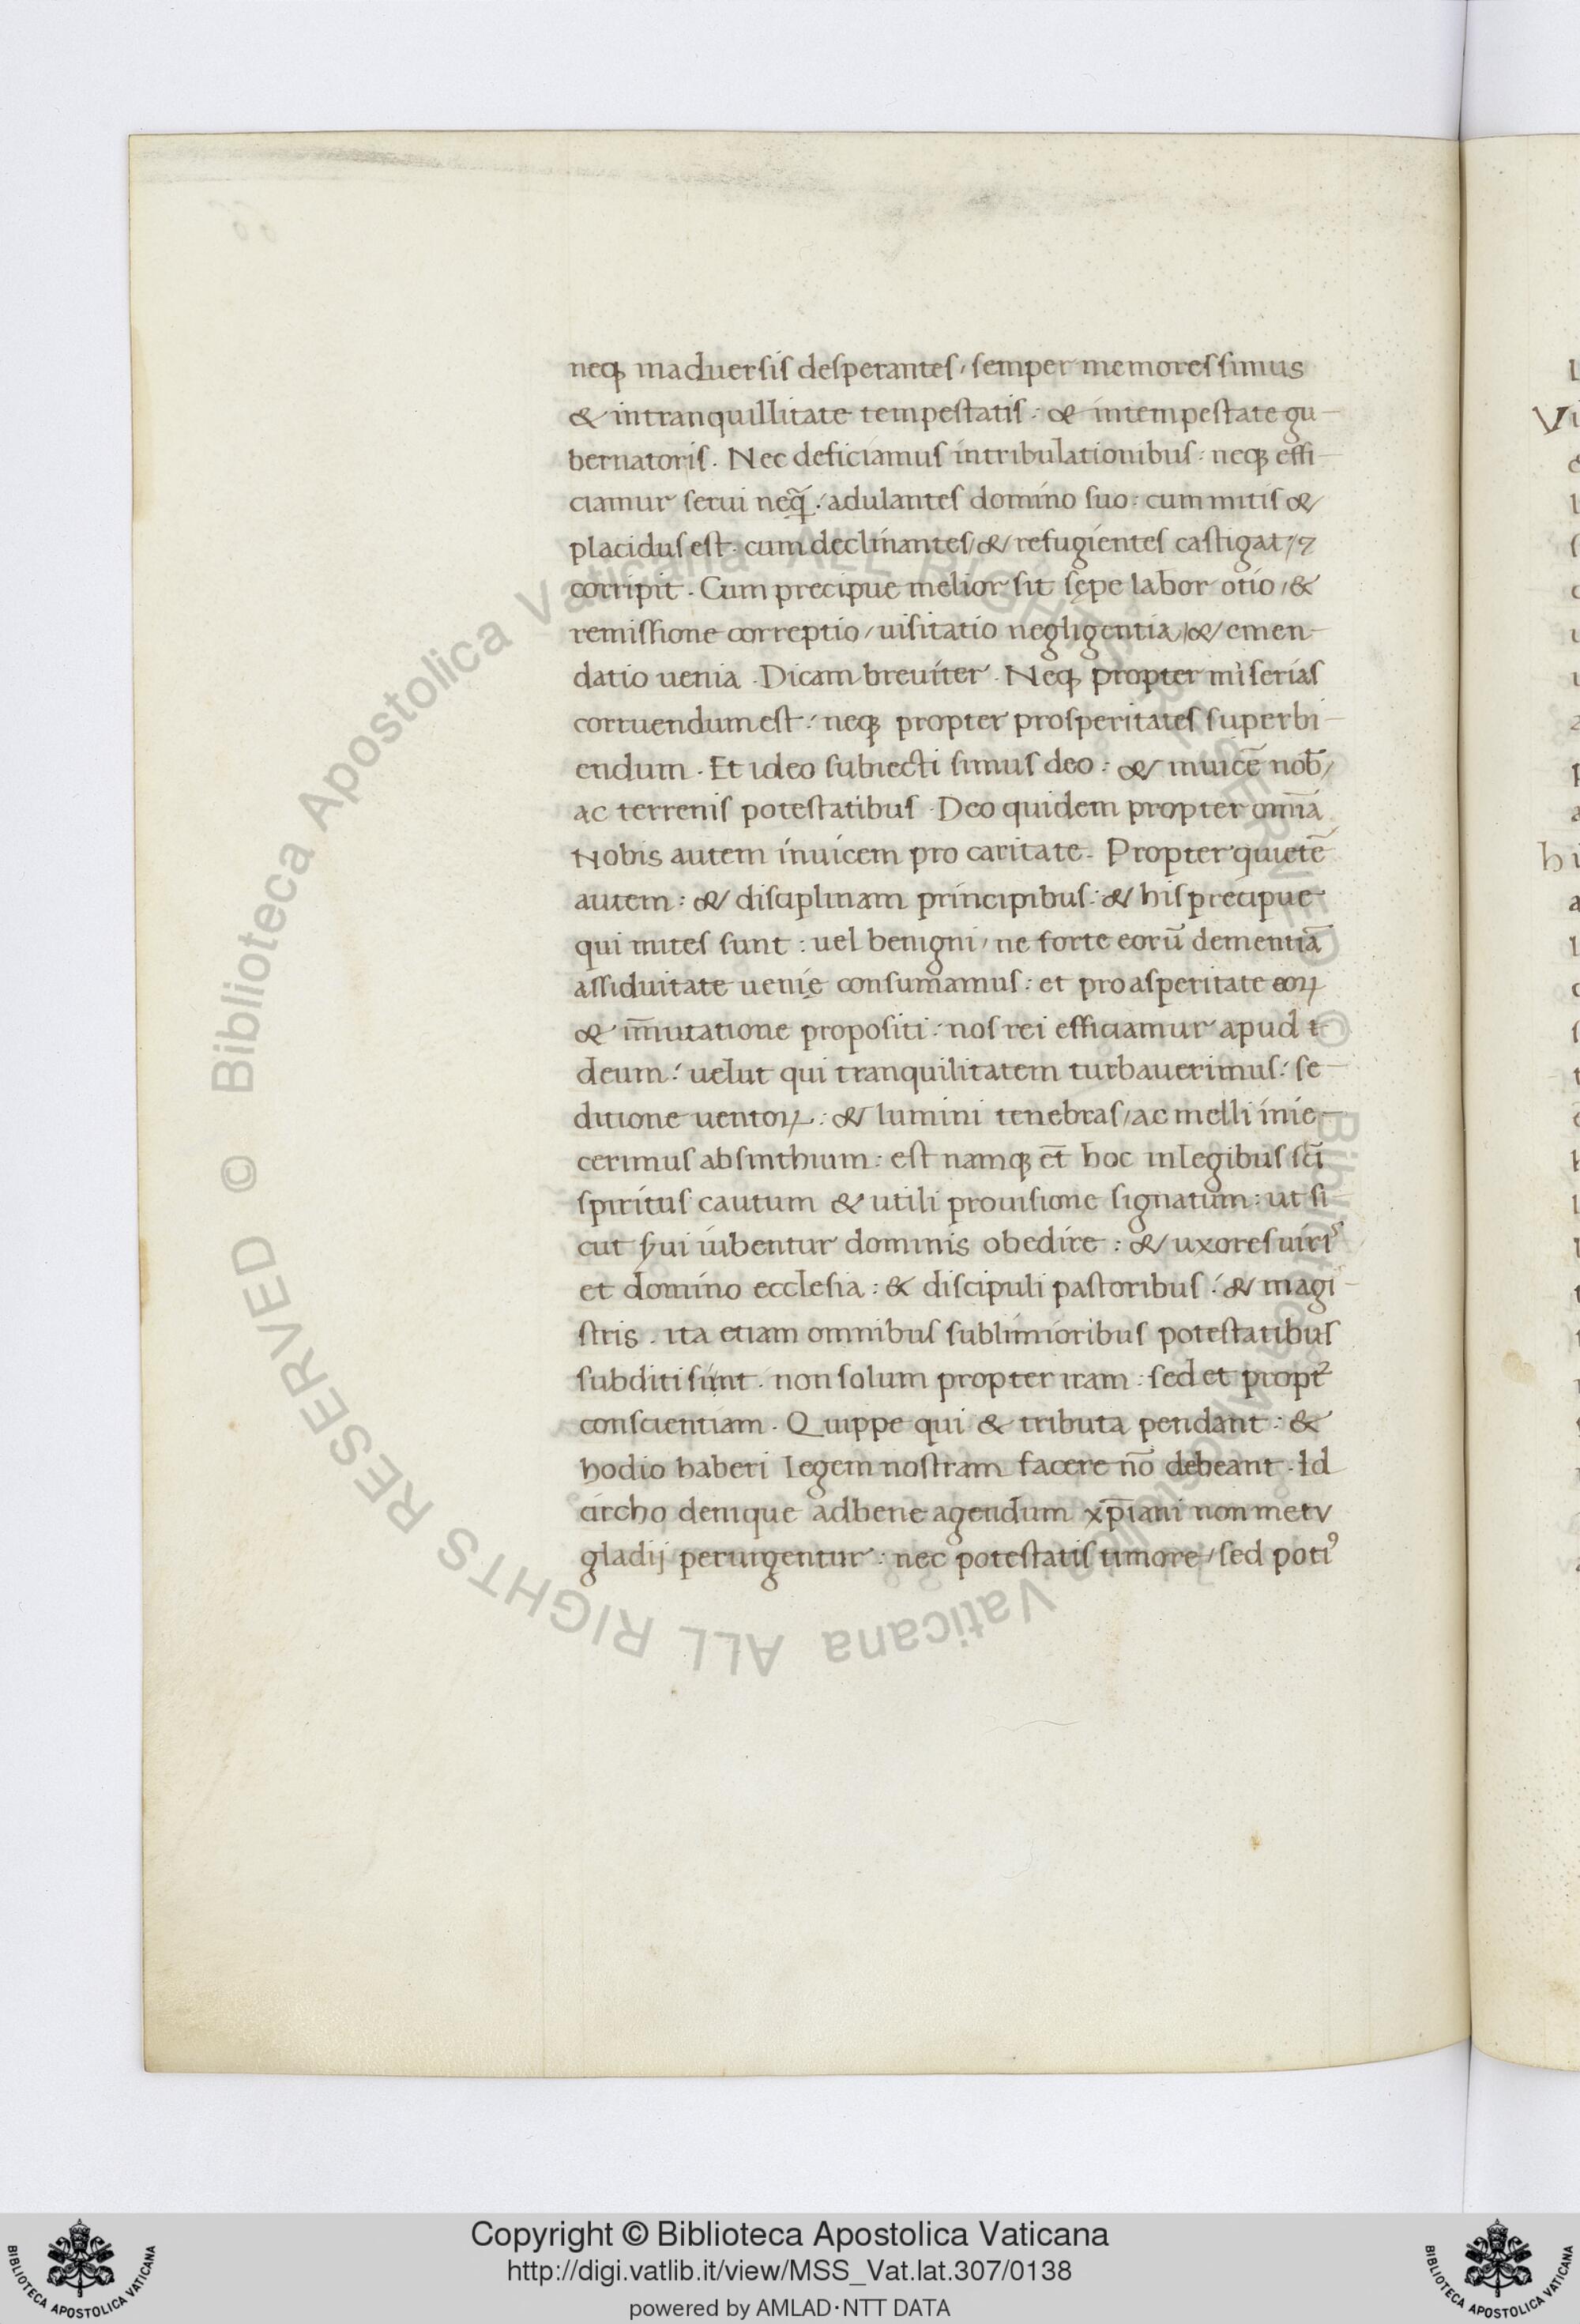 neqꝫ in aduersis desperantes / semper memores simus
& in tranquillitate tempestatis : & in tempestate gu-
bernatoris . Nec deficiamus in tribulationibus : neqꝫ effi-
ciamur serui neq̃ : adulantes domino suo : cum mitis &
placidus est . cum declinantes / & / refugientes castigat / ⁊
corripit . Cum precipue melior sit sępe labor otio / &
remissione correptio / uisitatio negligentia / & / emen-
datio uenia . Dicam breuiter . Neqꝫ propter miserias
corruendum est : neqꝫ propter prosperitates superbi-
endum . Et ideo subiecti simus deo : & inuicē nob̄ /
ac terrenis potestatibus . Deo quidem propter om̄ia
Nobis autem inuicem pro caritate . Propter quietē
autem : & disciplinam principibus : & his precipue
qui mites sunt : uel benigni / ne forte eorū clementiā
assiduitate uenię consumamus : et pro asperitate eoꝝ
& im̄utatione propositi : nos rei efficiamur apud t
deum : uelut qui tranquilitatem turbauerimus : se-
ditione uentoꝝ : & lumini tenebras / ac melli inie-
cerimus absinthium : est namqꝫ et̄ hoc in legibus sc̄i
spiritus cautum & utili prouisione signatum : ut si-
cut ẜui iubentur dominis obedire : & uxores uiri^s
et domino ecclesia : & discipuli pastoribus : & magi-
stris . ita etiam omnibus sublimioribus potestatibus
subditi sint . non solum propter iram : sed et propt^2
conscientiam . Quippe qui & tributa pendant : &
hodio haberi legem nostram facere nō debeant . Id
circho denique ad bene agendum xp̄iani non metu
gladij perurgentur : nec potestatis timore / sed potiꝰ
Copyright © Biblioteca Apostolica Vaticana
http://digi.vatlib.it/view/MSS_Vat.lat.307/0138
powered by AMLAD·NTT DATA